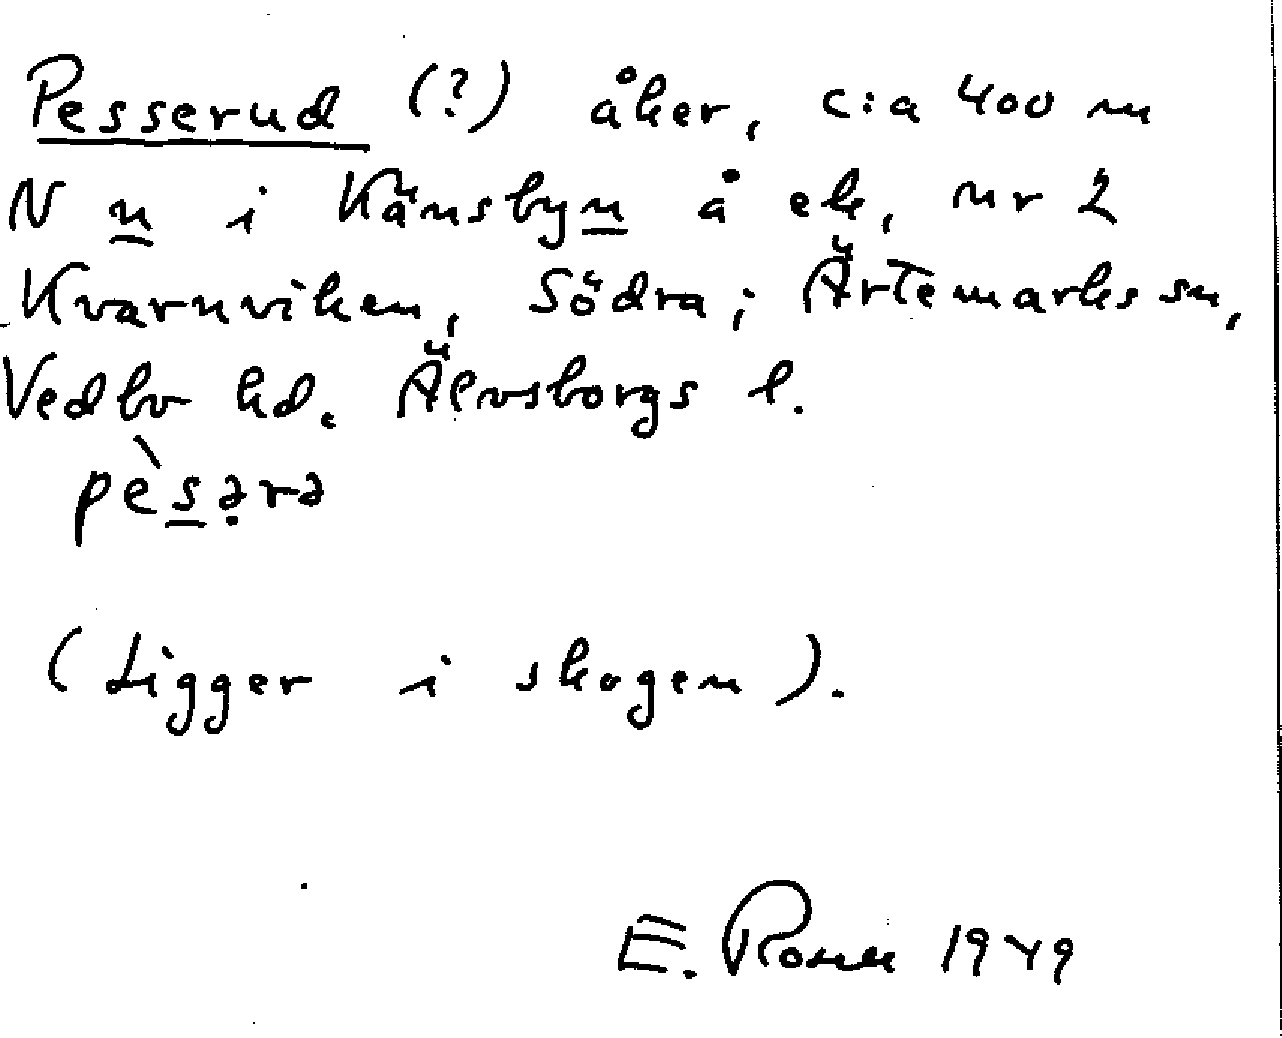 Pesserud (?) åker, c:a 400 m
N n i Känsbyn å ek, nr 2
Kvarnviken, Södra; Ärtemarks sn,
Vedbo hd. Älvsborgs l.
pèsərə
(Ligger i skogen).
E. 1949